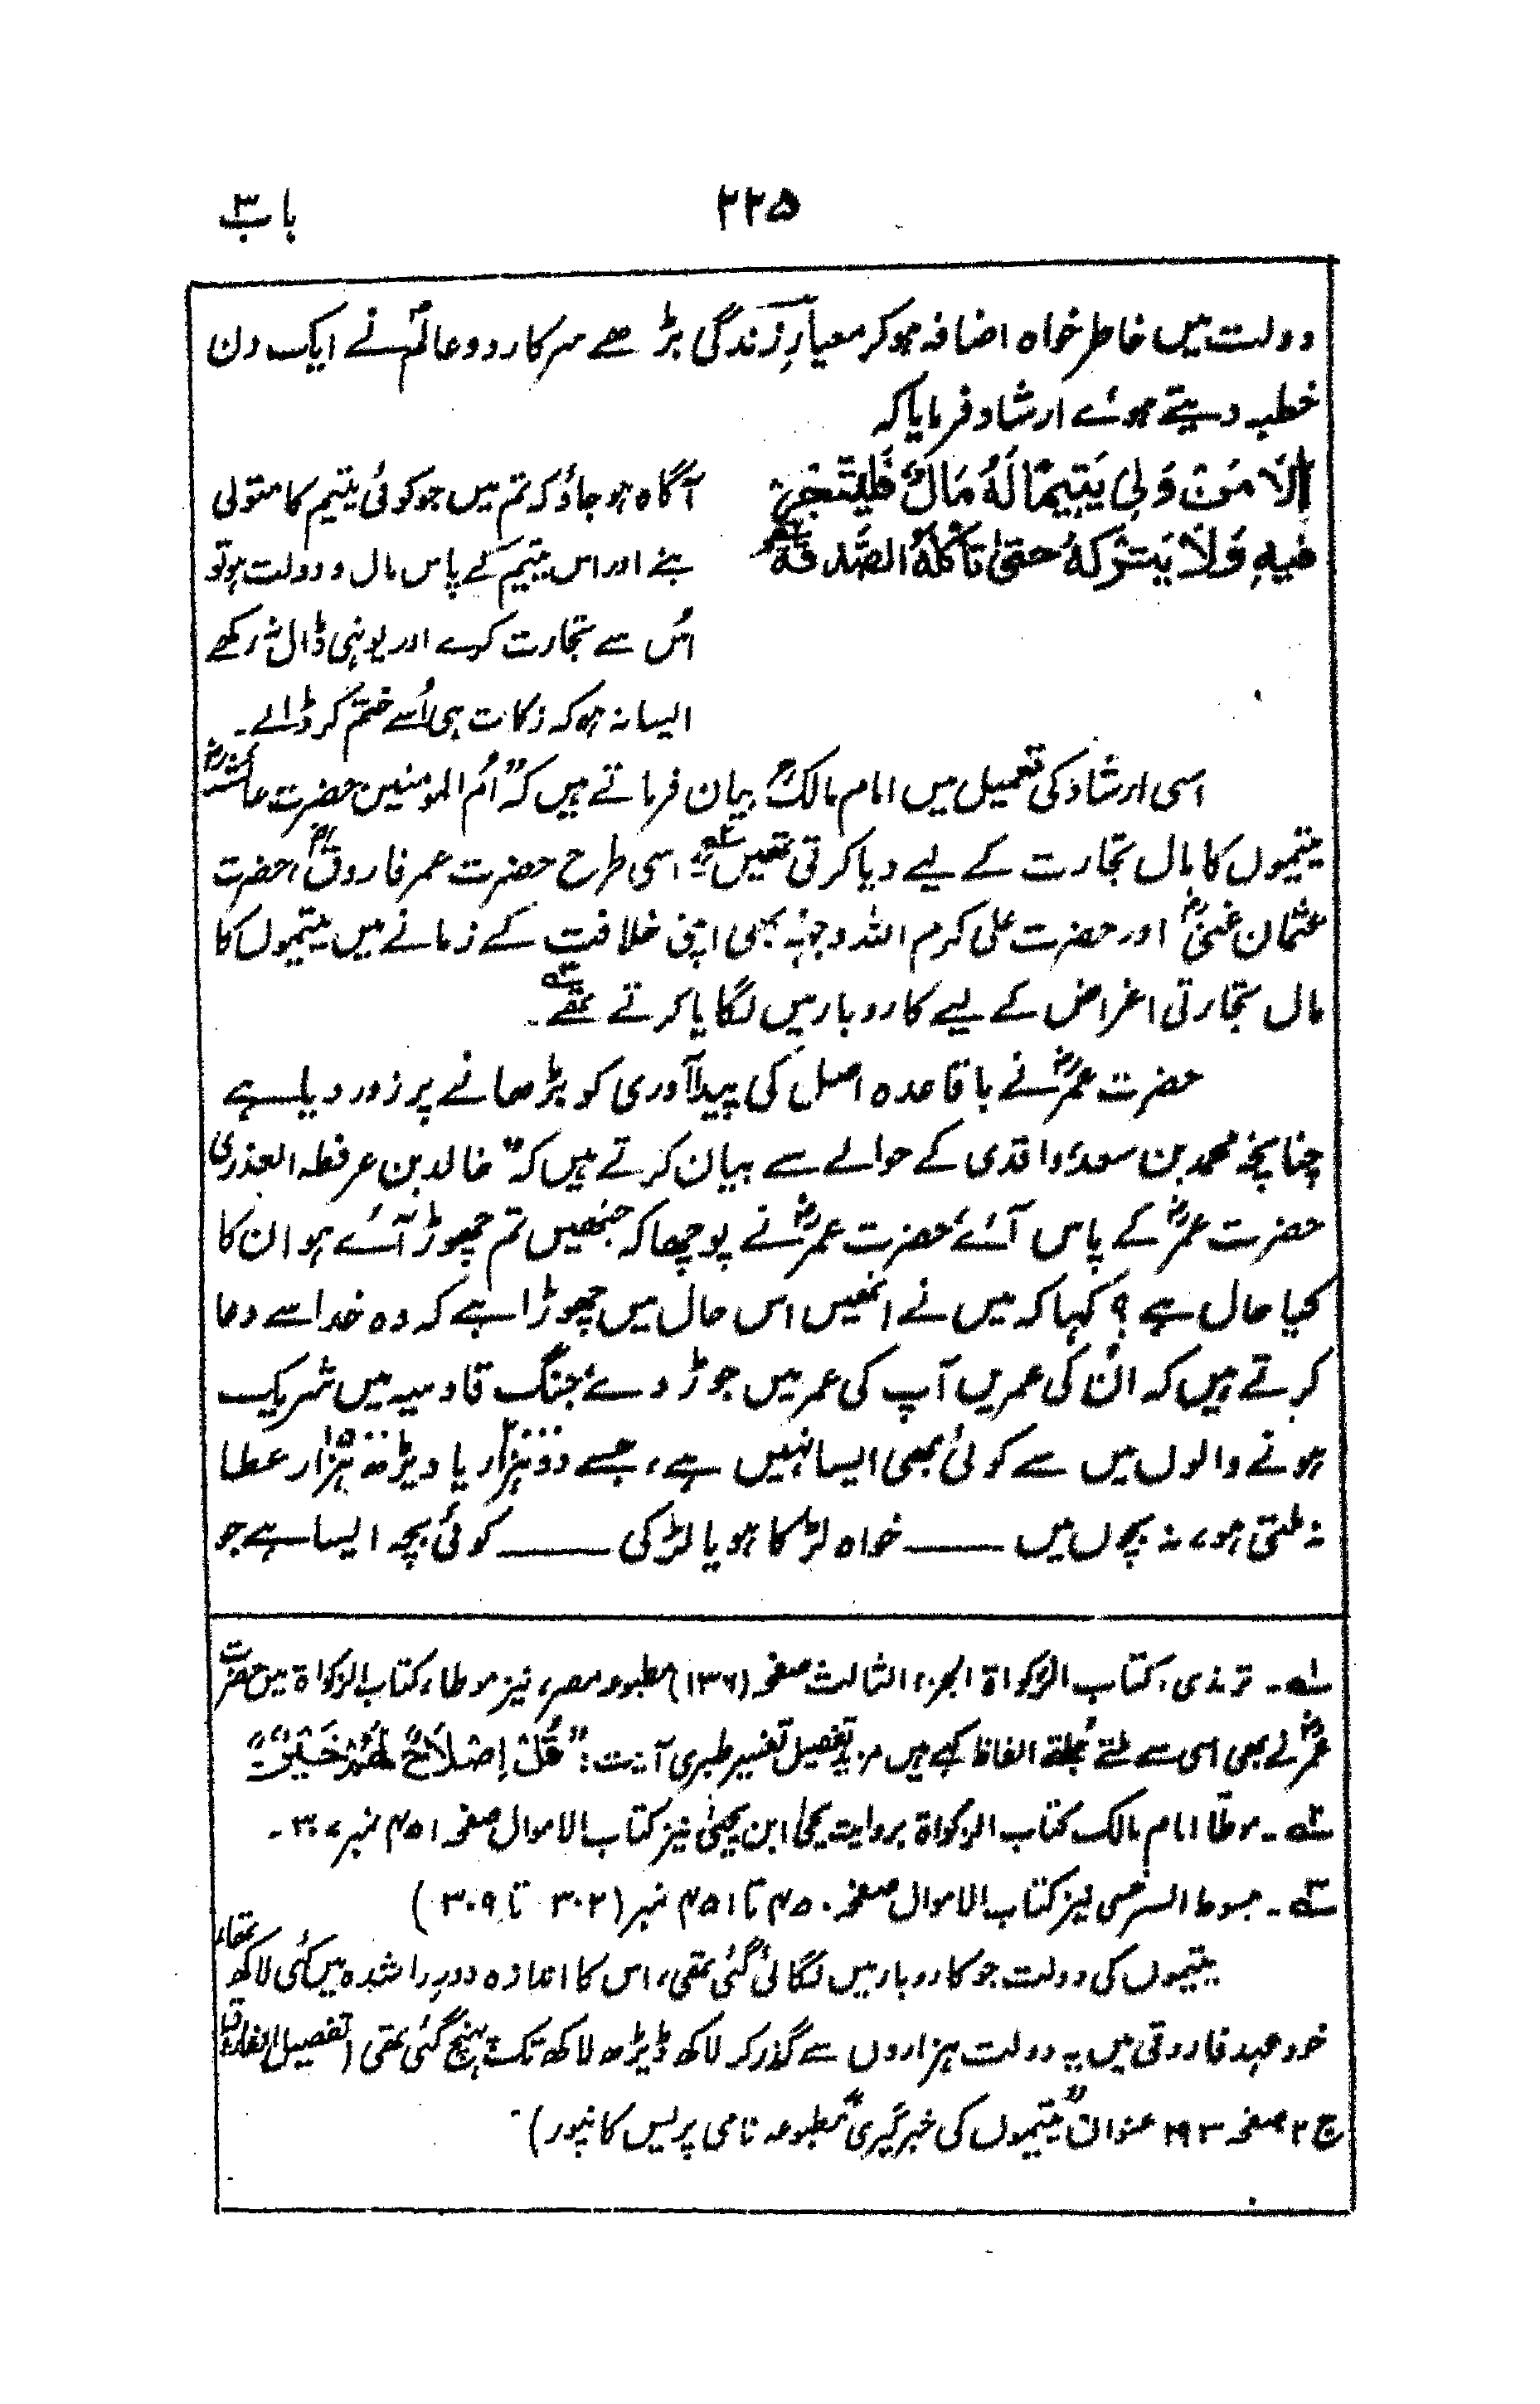 باب ۳
۲۲۵
دولت میں خاطر خواہ اضافہ ہو کر معیارِ زندگی بڑھے سرکار دو عالمؐ نے ایک دن
خطبہ دیتے ہوئے ارشاد فرمایا کہ
اَلَا مَنْ وَلِیَ یَتِیْمًا لَهُ مَالٌ فَلْیَتَّجِرْ
فِیْهِ وَلَا یَتْرُکْهُ حَتیّٰ تَأکُلَهُ الصَّدَقَةُ ۱ے
آگاہ ہو جاؤ کہ تم میں جو کوئی یتیم کا متولی
بنے اور اس یتیم کے پاس مال و دولت ہو تو
اُس سے تجارت کرے اور یونہی ڈال نہ رکھے
ایسا نہ ہو کہ زکات ہی اُسے ختم کر ڈالے۔
اسی ارشاد کی تعمیل میں امام مالکؒ بیان فرماتے ہیں کہ "اُم المؤمنین حضرت عائشہؓ
یتیموں کا مال تجارت کے لیے دیا کرتی تھیں ۲ے" اسی طرح حضرت عمر فاروقؓ، حضرت
عثمان غنیؓ اور حضرت علی کرم اللہ وجہٰہ بھی اپنی خلافت کے زمانے میں یتیموں کا
مال تجارتی اغراض کے لیے کاروبار میں لگایا کرتے تھے ۳ے۔
حضرت عمرؓ نے باقاعدہ اصل کی پیداآوری کو بڑھانے پر زور دیا ہے
چنانچہ محمد بن سعد، واقدی کے حوالے سے بیان کرتے ہیں کہ "خالد بن عرفطہ العذری
حضرت عمرؓ کے پاس آئے، حضرت عمرؓ نے پوچھا کہ جنھیں تم چھوڑ آئے ہو ان کا
کیا حال ہے؟ کہا کہ میں نے انھیں اس حال میں چھوڑا ہے کہ وہ خدا سے دعا
کرتے ہیں کہ اُن کی عمریں آپ کی عمر میں جوڑ دے، جنگ قادسیہ میں شریک
ہونے والوں میں سے کوئی بھی ایسا نہیں ہے، جسے دو ہزار ۲۰۰۰ یا ڈیڑھ ہزار ۱۵۰۰ عطا
نہ ملتی ہو، نہ بچوں میں —— خواہ لڑکا ہو یا لڑکی —— کوئی بچہ ایسا ہے جو
۱ے۔ ترمذی، کتاب الزکواة الجزء الثالث صفحہ (۱۳۶) مطبوعہ مصر، نیز موطا، کتاب الزکواة میں حضرت
عمرؓ نے بھی اسی سے ملتے جُلتے الفاظ کہے ہیں مزید تفصیل تفسیر طبری آیت: "قُلْ اِصْلَاحٌ لَّهُمْ خَیْرٌ"
۲ے۔ موطّا امام مالک کتاب الزکواة بروایت یحیٰ ابن یحییٰ نیز کتاب الاموال صفحہ ۴۵۱ نمبر ۳۰۷۔
۳ے۔ مبسوط السرخسی نیز کتاب الاموال صفحہ ۴۵۰ تا ۴۵۱ نمبر (۳۰۲ تا ۳۰۹)
یتیموں کی دولت جو کاروبار میں لگائی گئی تھی، اس کا اندازہ دورِ راشدہ میں کئی لاکھ تھا،
خود عہد فاروقی میں یہ دولت ہزاروں سے گذر کر لاکھ ڈیڑھ لاکھ تک پہنچ گئی تھی (تفصیل الفاروق
ج ۲ صفحہ ۱۹۳ عنوان "یتیموں کی خبرگیری" مطبوعہ نامی پریس کانپور)۔